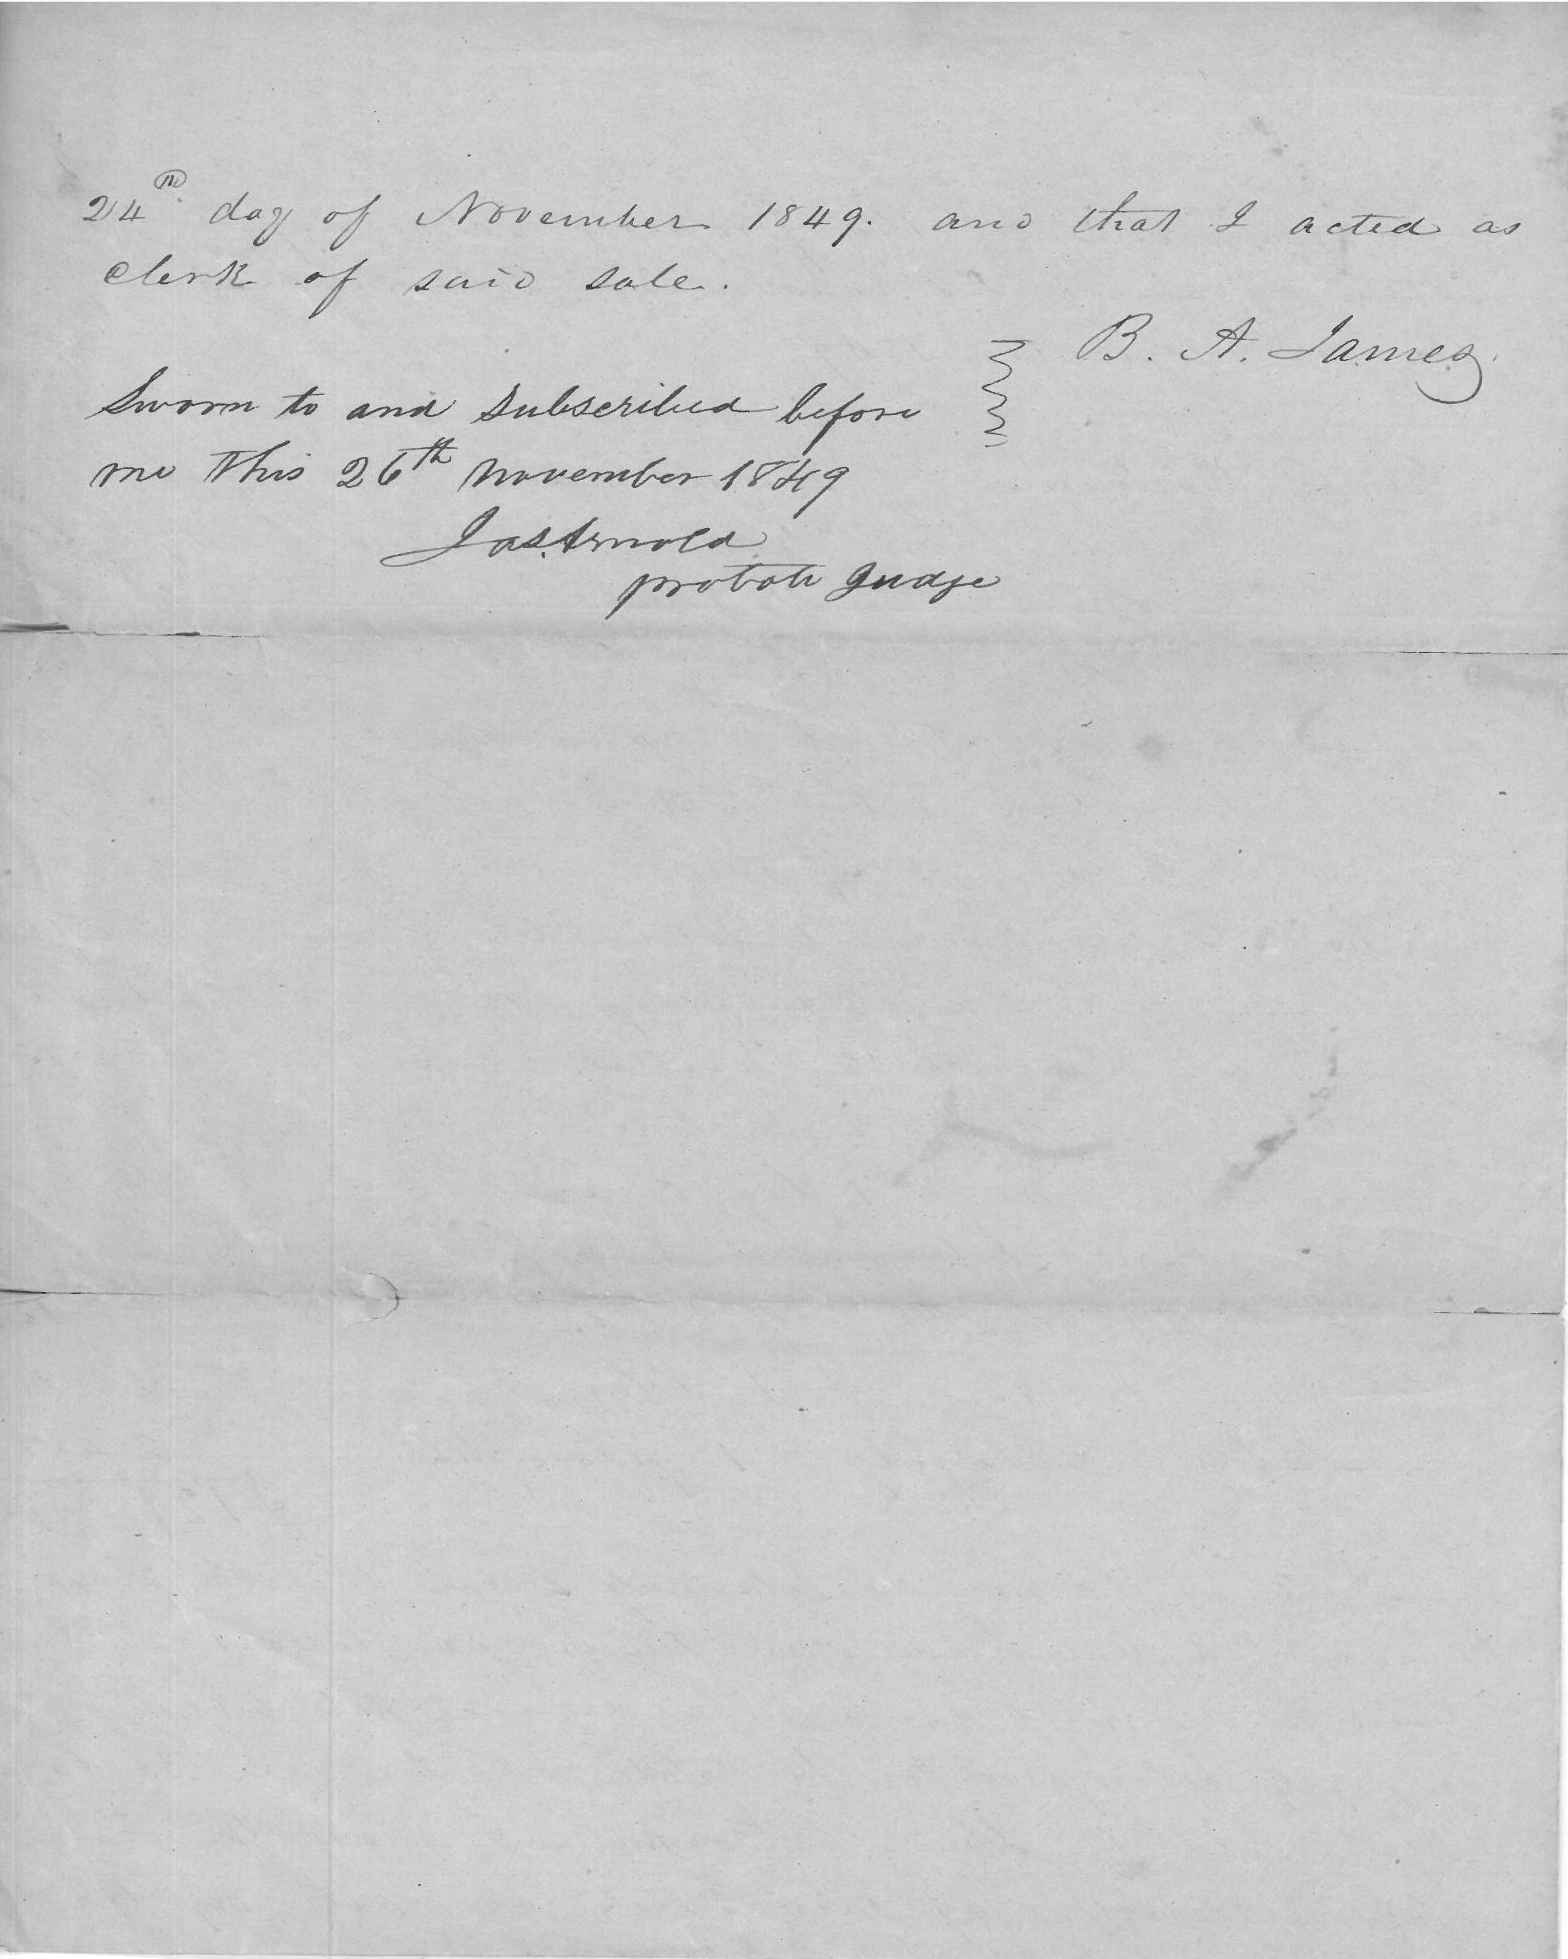 24th day of November 1849. and that I acted as
clerk of said sale.
B. A. James
Sworn to and Subscribed before
me this 26th November 1849
Jas. Arnold
probate Judge